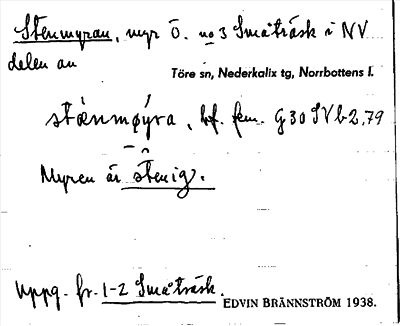 Stenmyran, myr Ö. no 3 Småträsk i NV
delen av
Töre sn, Nederkalix tg, Norrbottens l.
bf. fem. G30SVb2,79
Myren är stenig.
Uppg. fr. 1-2 Småträsk.
EDVIN BRÄNNSTRÖM 1938.